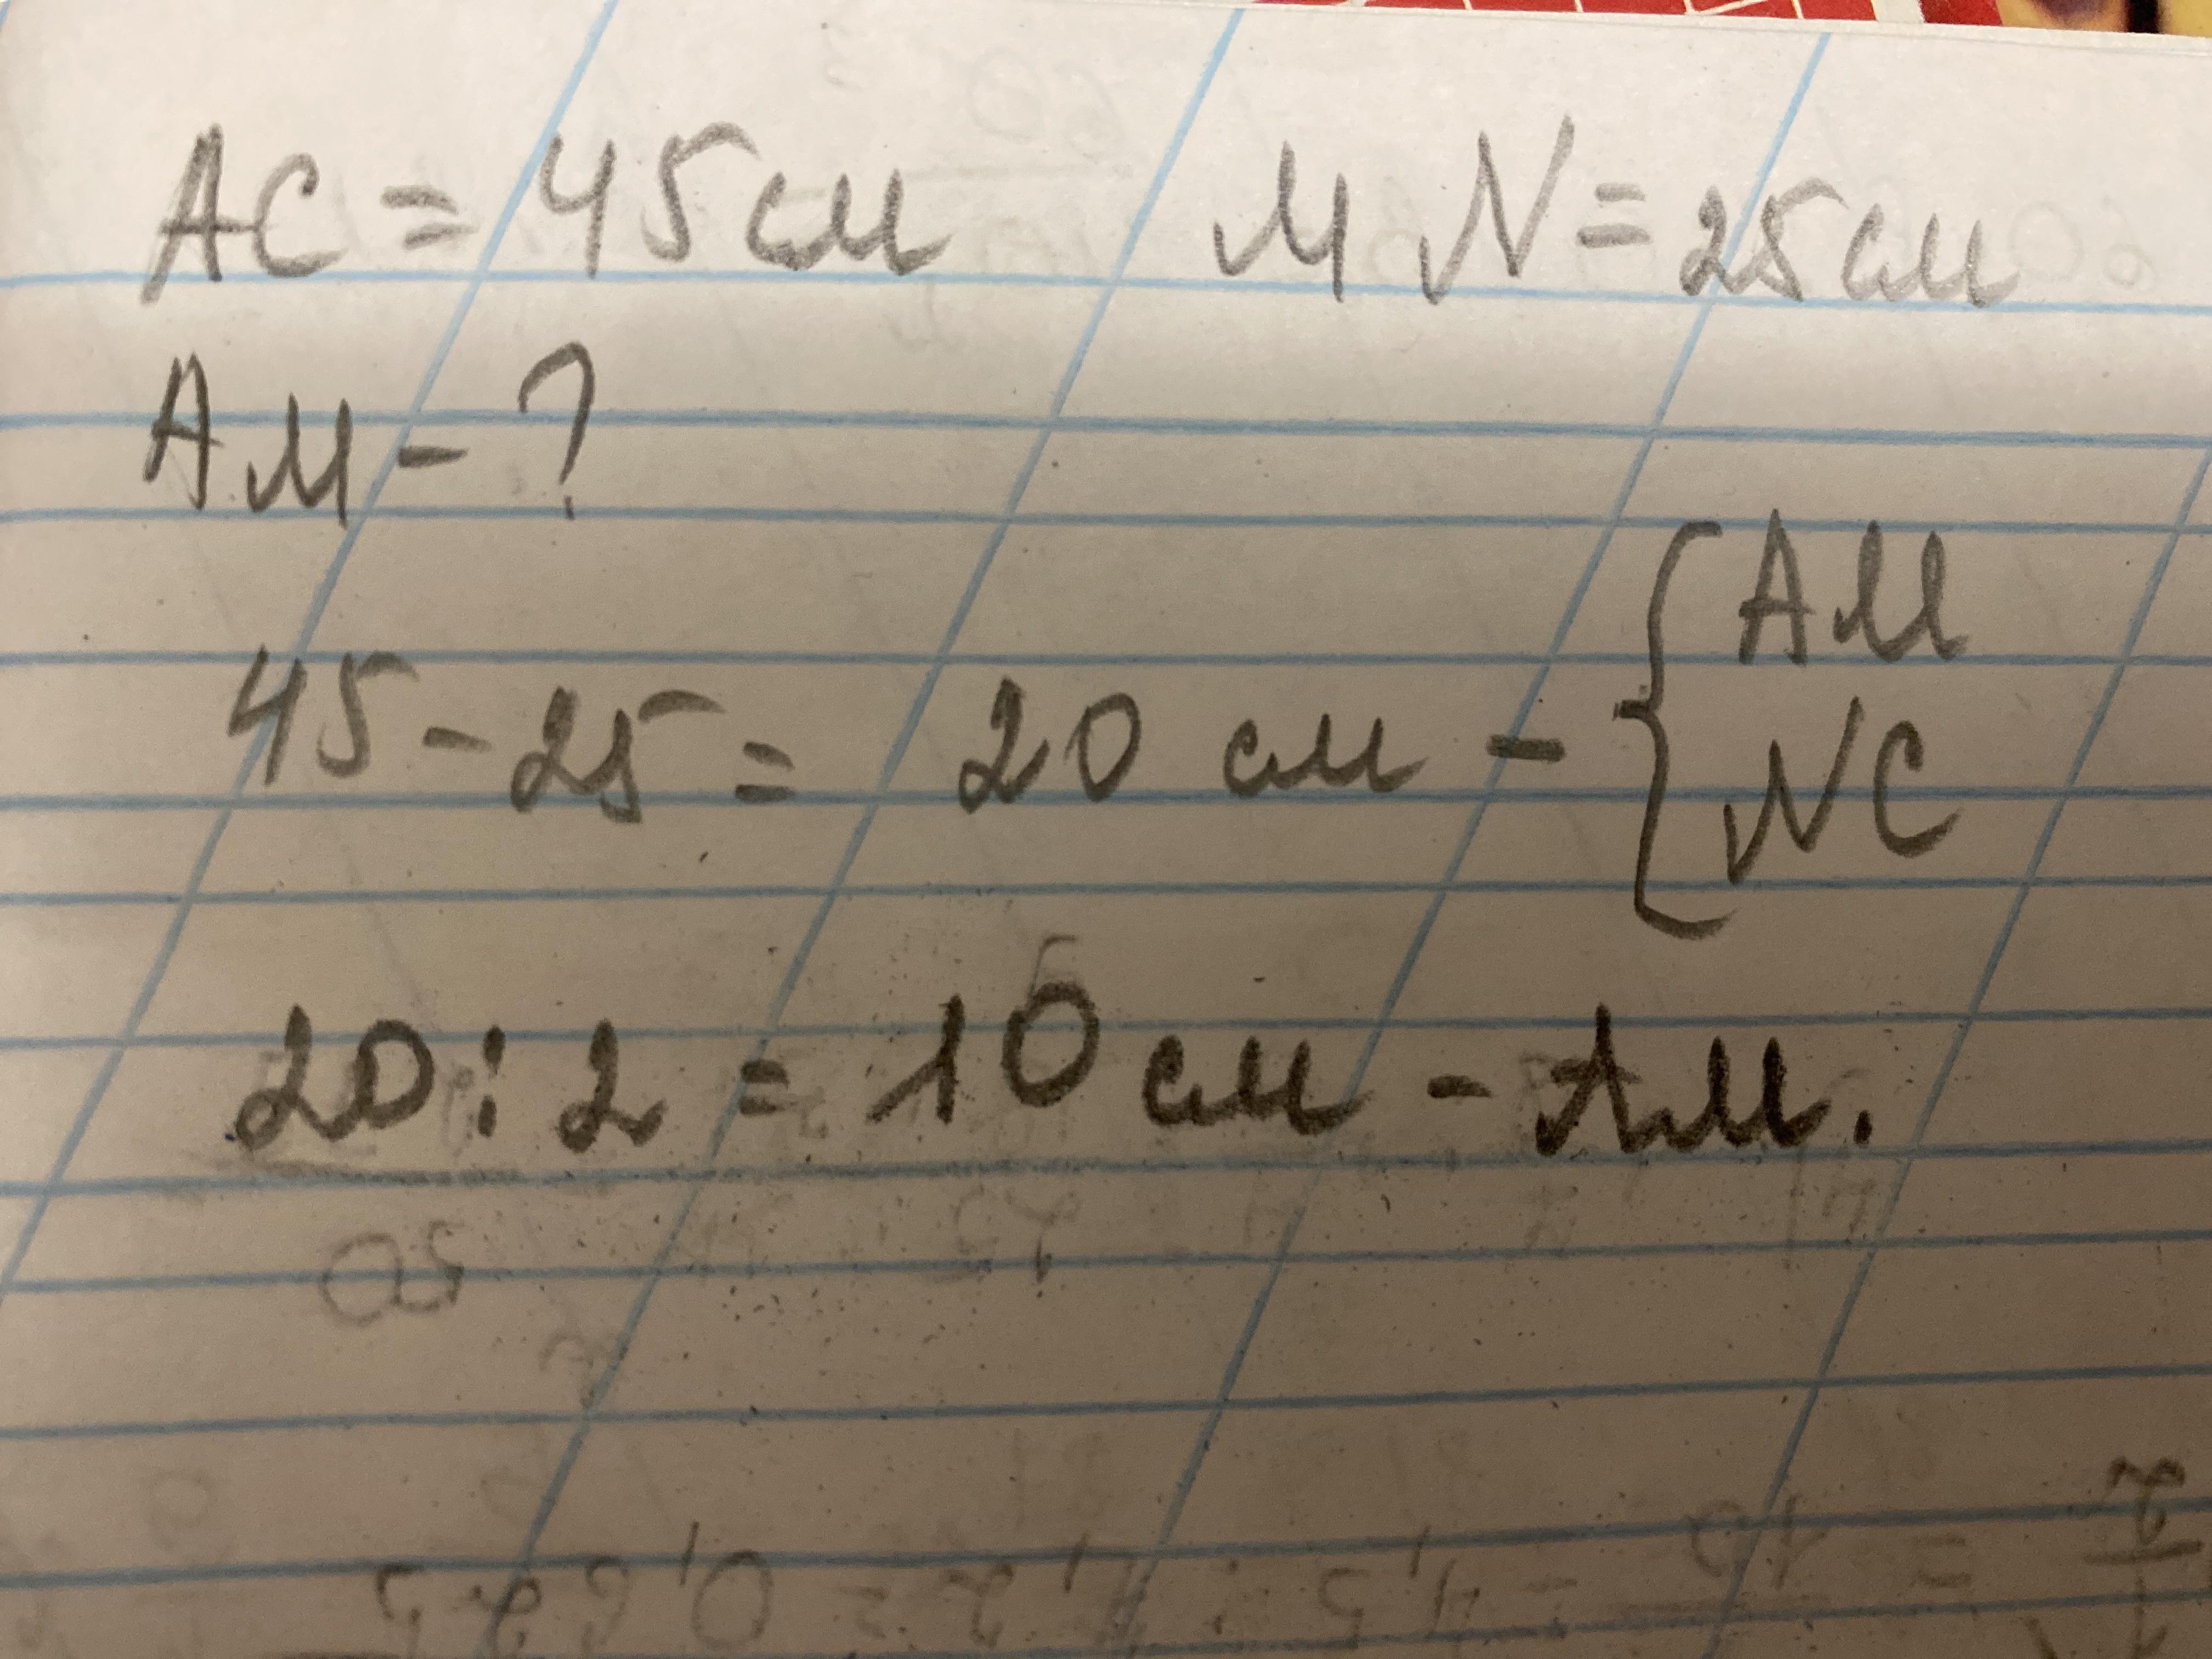 AC = 45 см MN = 25 см
AM - ?
45 - 25 = 20 см - { AM
NC
20 : 2 = 10 см - AM.